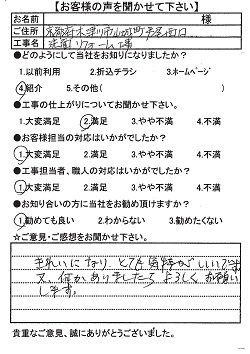 【お客様の声を聞かせて下さい】
お名前 様
ご住所 京都府木津川市山城町
工事名 洗面リフォーム工事
●どのようにして当社をお知りになりましたか？
1.以前利用 2.折込チラシ 3.ホームページ
4.紹介 5.その他( )
●工事の仕上がりについてお聞かせ下さい。
1.大変満足 2.満足 3.やや不満 4.不満
●お客様担当の対応はいかがでしたか？
1.大変満足 2.満足 3.やや不満 4.不満
●工事担当者、職人の対応はいかがでしたか？
1.大変満足 2.満足 3.やや不満 4.不満
●お知り合いの方に当社をお勧め頂けますか？
1.勧めても良い 2.わからない 3.勧めたくない
☆ご意見・ご感想をお聞かせ下さい。
きれいになり、とても気持がいいです
又、何かありましたらよろしくお願い
します。
貴重なご意見、誠にありがとうございました。